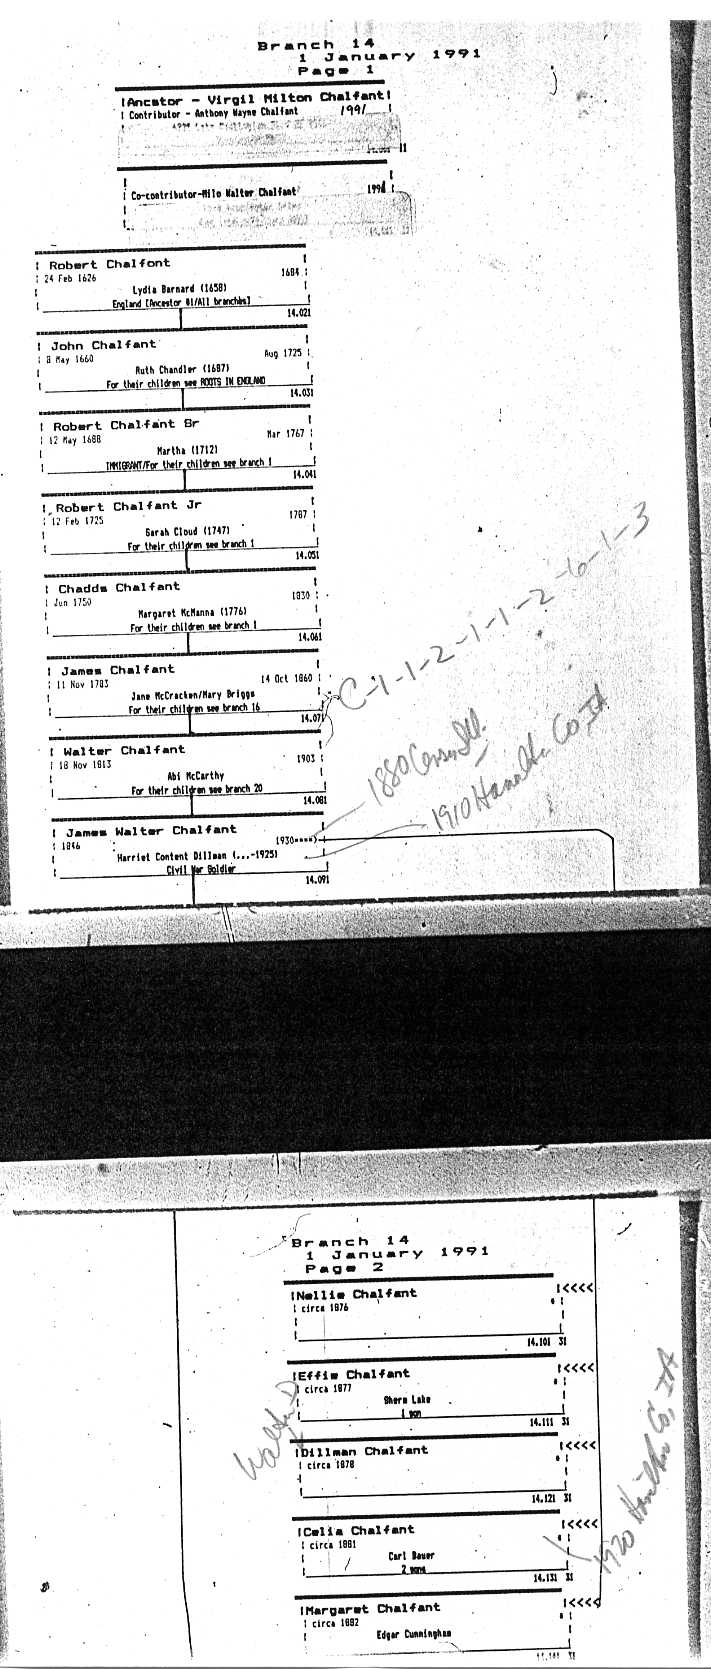 Branch 14
1 January 1991
Page 1
Ancstor - Virgil Milton Chalfant
Contributor - Anthony Wayne Chalfant 1991
Co-contributor-Milo Walter Chalfant 1991
Robert Chalfont
24 Feb 1626 1684
Lydia Barnard (1658)
England [Ancestor #1/All branches]
14.021
John Chalfant
8 May 1660 Aug 1725
Ruth Chandler (1687)
For their children see ROOTS IN ENGLAND
14.031
Robert Chalfant Sr
12 May 1688 Mar 1767
Martha (1712)
IMMIGRANT/For their children see branch 1
14.041
Robert Chalfant Jr
12 Feb 1725 1787
Sarah Cloud (1747)
For their children see branch 1
14.051
Chadds Chalfant
Jun 1750 1830
Margaret McManna (1776)
For their children see branch 1
14.061
C-1-1-2-1-1-2-6-1-3
James Chalfant
11 Nov 1783 14 Oct 1860
Jane McCracken/Mary Briggs
For their children see branch 16
14.071
Walter Chalfant
18 Nov 1813 1903
Abi McCarthy
For their children see branch 20
14.081
1880 Ill.
1910 Hamilton Co, IA
James Walter Chalfant
1846 1930====>
Harriet Content Dillman (...-1925)
Civil War Soldier
14.091
Branch 14
1 January 1991
Page 2
Nellie Chalfant <<<<
circa 1876
14.101 31
Effie Chalfant <<<<
circa 1877
Sherm Lake
1 son
14.111 31
Walter D
Dillman Chalfant <<<<
circa 1878
14.121 31
Celia Chalfant <<<<
circa 1881
Carl Bauer
2 sons
14.131 31
1920 Hamilton Co, IA
Margaret Chalfant <<<<
circa 1882
Edgar Cunningham